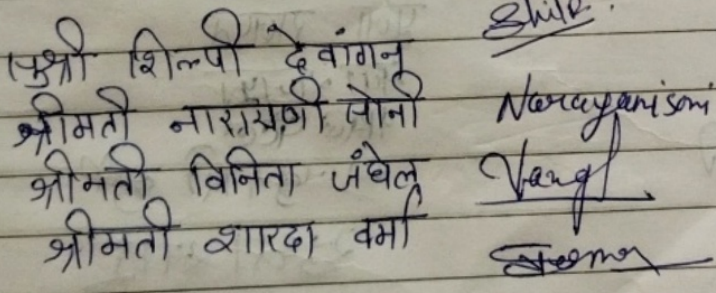 सुश्री शिल्पी देवांगन Shilp.
श्रीमती नारायणी सोनी Narayani soni
श्रीमती विनिता जंघेल
श्रीमती शारदा वर्मा